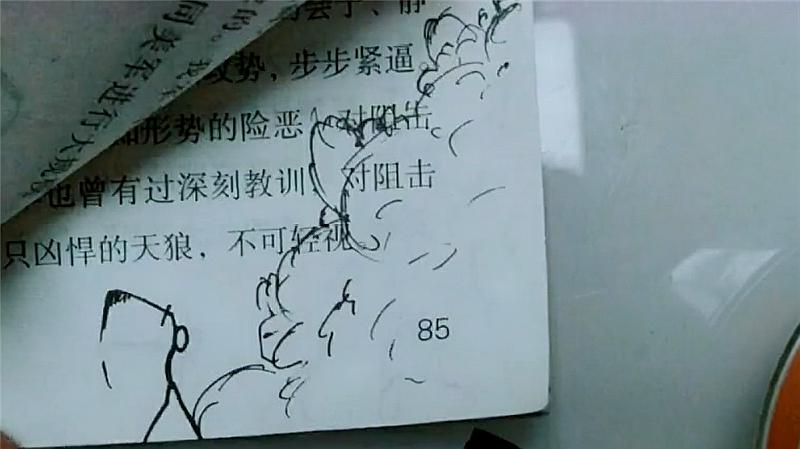 势，步步紧逼。
形势的险恶，对阻击
也曾有过深刻教训，对阻击
只凶悍的天狼，不可轻视。
85
同美军进行大规